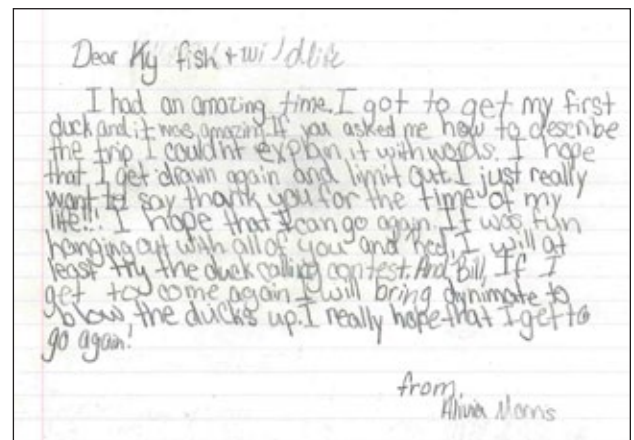 Dear Ky fish + wildlife
I had an amazing time. I got to get my first
duck and it was amazin. If you asked me how to describe
the trip I couldnt explain it with words. I hope
that I get drawn again and limit out. I just really
want to say thank you for the time of my
life!!! I hope that I can go again. It was fun
hanging out with all of you and I will at
least try the duck calling contest. And, Bill, If I
get to come again I will bring dynimate to
blow the ducks up. I really hope that I get to
go again!
from,
Morris